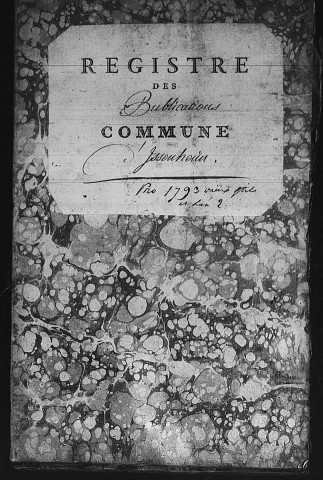 REGISTRE
DES
Publications
COMMUNE
d'Issenheim.
Pro 1793 vieux stile
et an 2